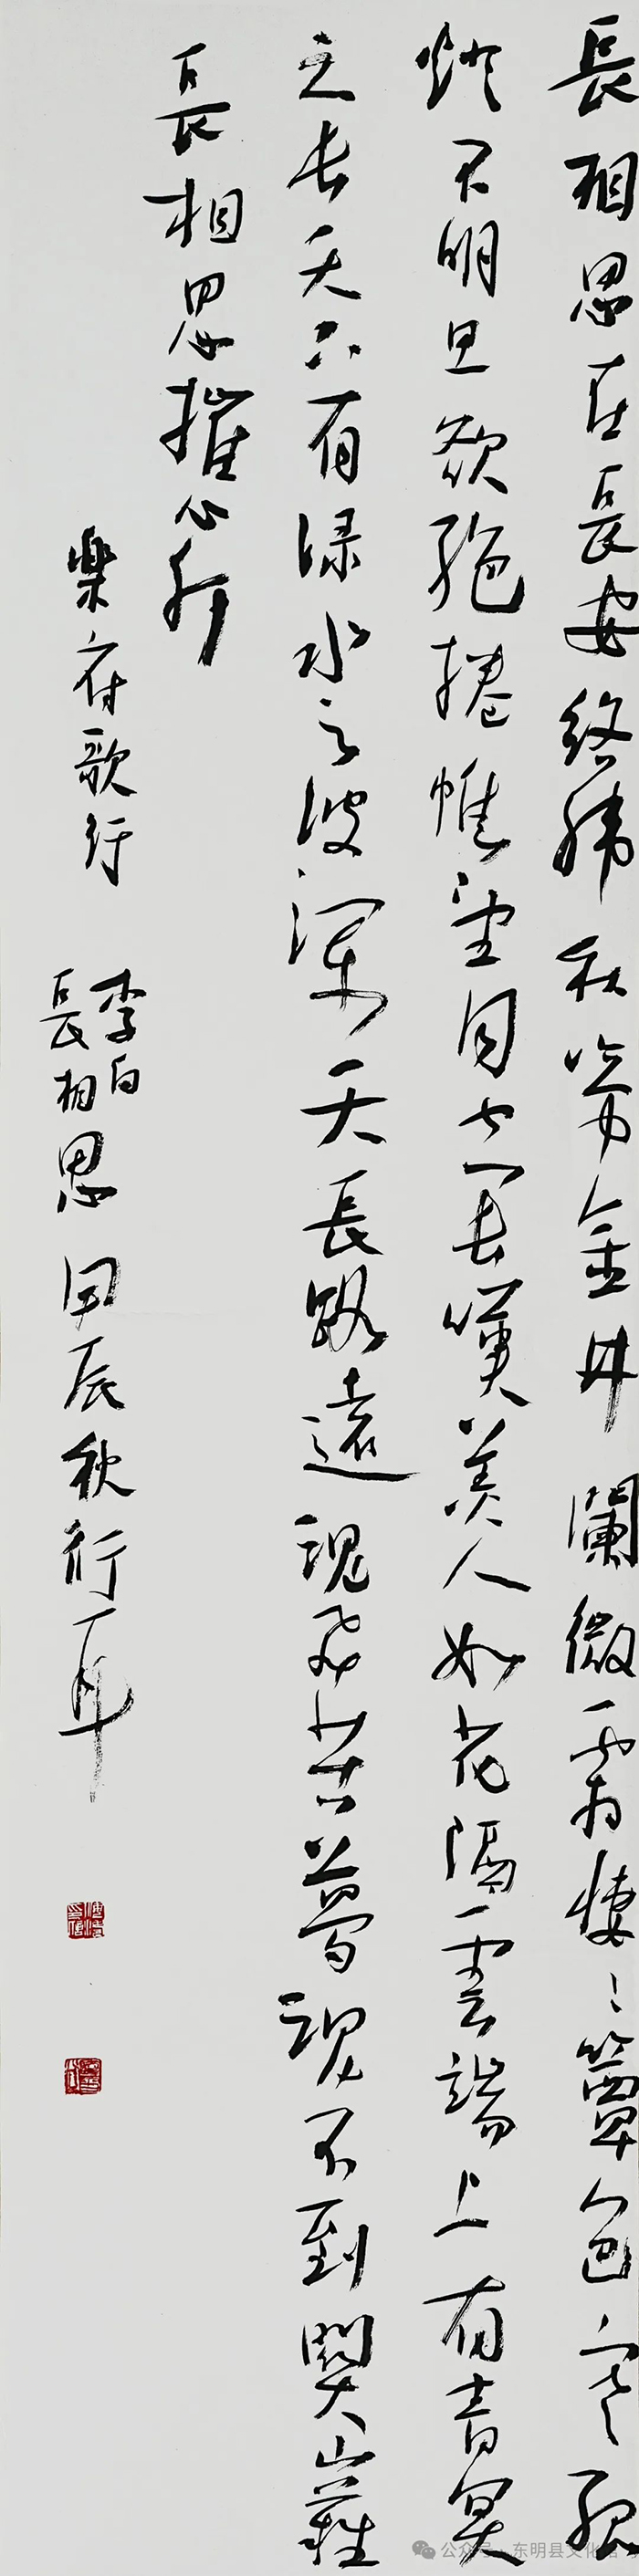 長相思在長安絡緯秋啼金井闌微霜悽〻簟色寒孤
燈不明思欲絕捲帷望月空長嘆美人如花隔雲端上有青冥
之長天下有淥水之波瀾天長路遠魂飛苦夢魂不到關山難
長相思摧心肝
樂府歌行
李白
長相思 甲辰秋
公众号·东明县文化馆